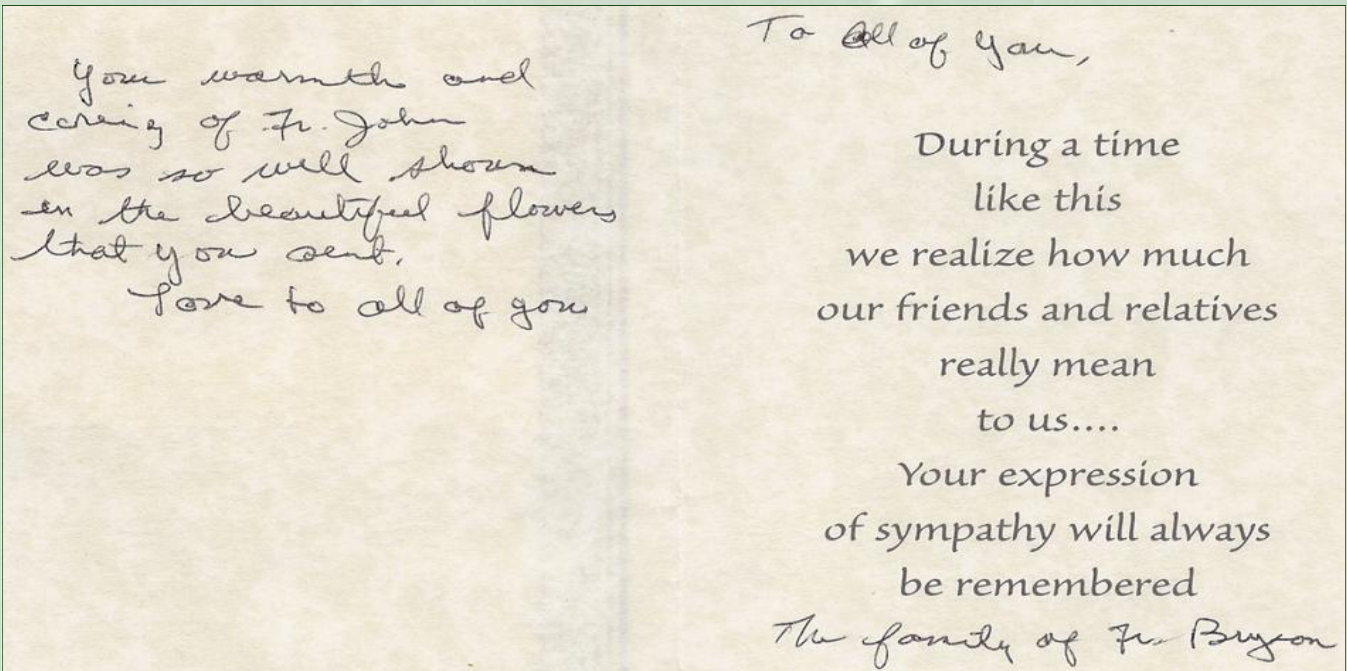 Your warmth and
caring of Fr. John
was so well shown
in the beautiful flowers
that you sent.
Love to all of you
To all of you,
During a time
like this
we realize how much
our friends and relatives
really mean
to us....
Your expression
of sympathy will always
be remembered
The family of Fr. Bryson